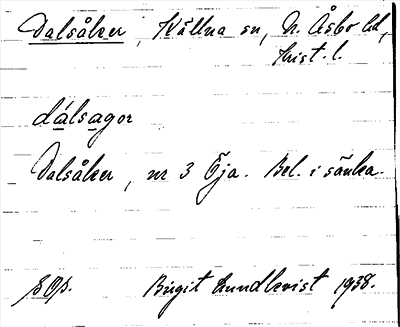 Dalsåker, Källna sn, N. Åsbo hd,
Krist. l.
dálsagor
Dalsåker, nr 3 Öja. Bel. i sänka.
Birgit Lundkvist 1938.